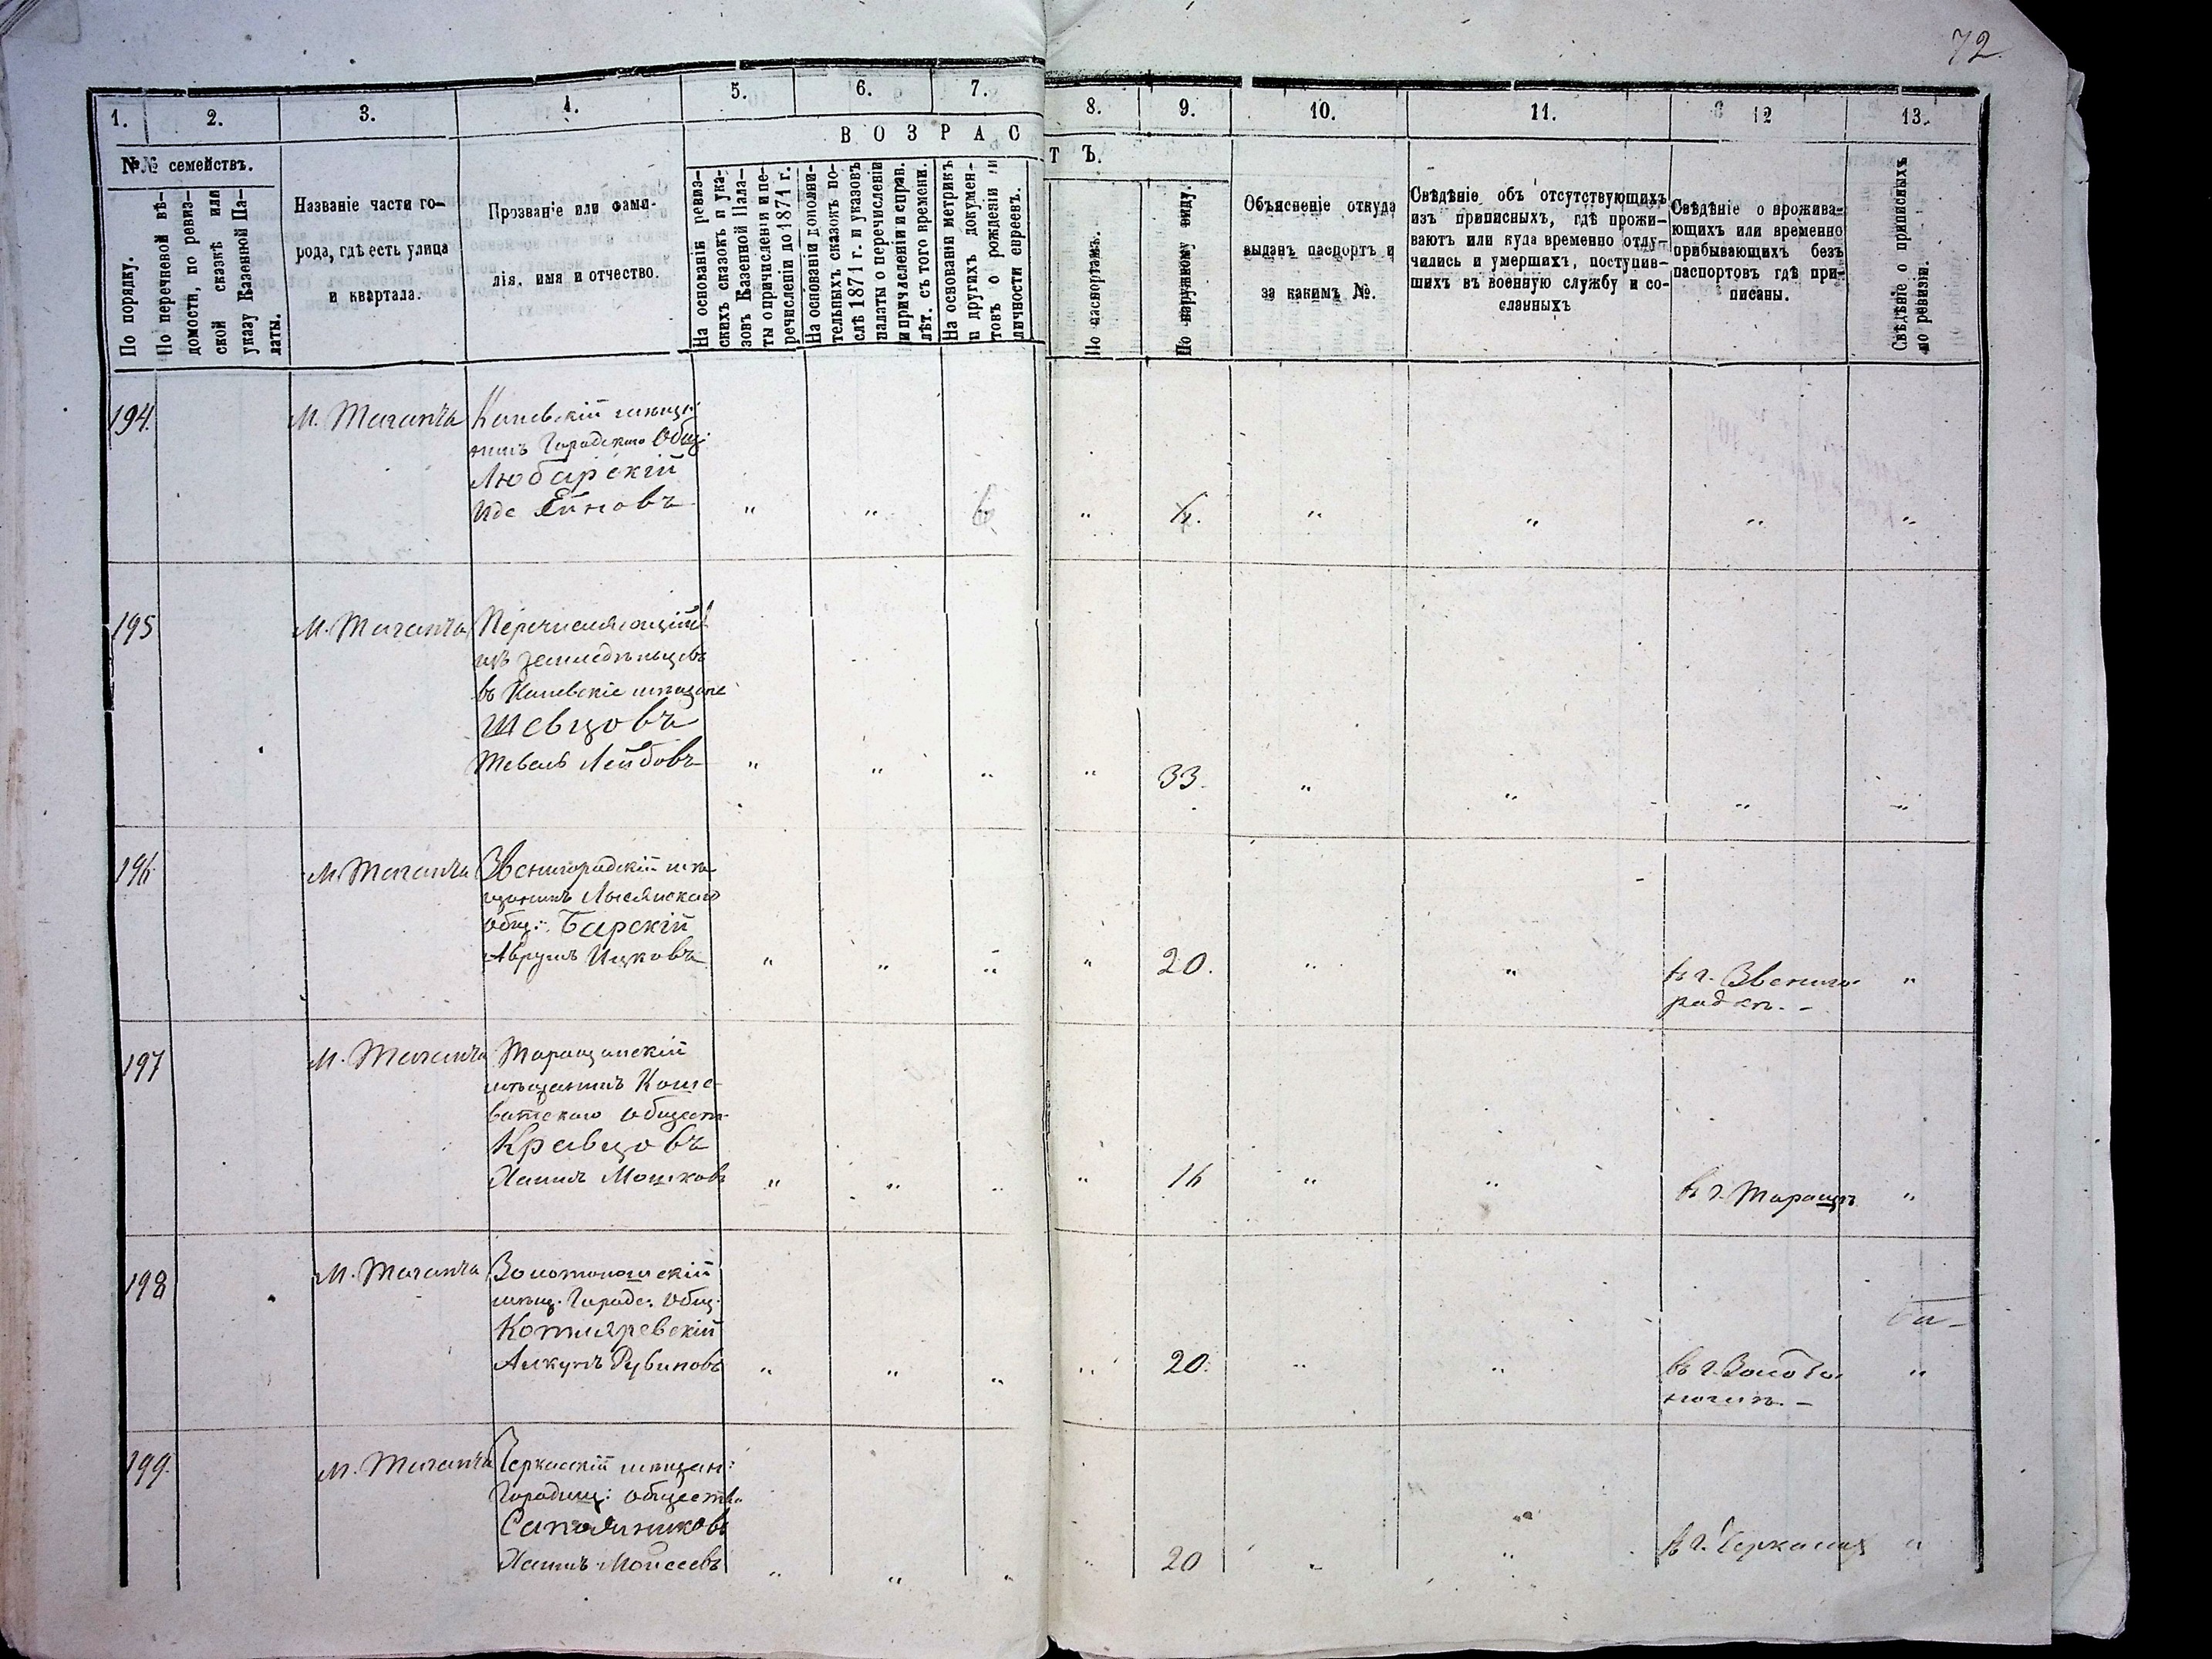 72.
1. 2. 3. 4. 5. 6. 7. 8. 9. 10. 11. 12 13.
№№ семействъ.
По порядку.
По перечневой вѣ-
домости, по ревиз-
ской сказкѣ или
указу Казенной Па-
латы.
Названіе части го-
рода, гдѣ есть улица
и квартала.
Прозваніе или фами-
лія, имя и отчество.
ВОЗРАСТЪ.
На основаніи ревиз-
скихъ сказокъ и ука-
зовъ Казенной Пала-
ты о причисленіи и пе-
речисленіи до 1871 г.
На основаніи дополни-
тельныхъ сказокъ по-
слѣ 1871 г. и указовъ
палаты о перечисленіи
и причисленіи и справ.
лѣт. съ того времени.
На основаніи метрикъ
и другихъ докумен-
товъ о рожденіи и
личности евреевъ.
По паспортамъ.
По наружному виду.
Объясненіе откуда
выданъ паспортъ и
за какимъ №.
Свѣдѣніе объ отсутствующихъ
изъ приписныхъ, гдѣ прожи-
ваютъ или куда временно отлу-
чились и умершихъ, поступив-
шихъ въ военную службу и со-
сланныхъ
Свѣдѣніе о прожива-
ющихъ или временно
прибывающихъ безъ
паспортовъ гдѣ при-
писаны.
Свѣдѣніе о приписныхъ
по ревизіи.
194. М. Таганча Каневскій мѣща-
нинъ Городскаго Общ:
Любарскій
Иде " " 6 " " " " "
195 М. Таганча Перечисляющійся
изъ земледѣльцевъ
въ Каневскіе мѣщане
Шевцовъ
Тевель Лейбовъ " " " " 33. " " " "
196 М. Таганча Звенигородскій мѣ-
щанинъ Лысянскаго
общ: Барскій
Аврумъ Ицковъ " " " " 20. " " въ г. Звениго- "
родкѣ. -
197 М. Таганча Таращанскій
мѣщанинъ Коше-
ватскаго общест
Кравцовъ
Хаимъ Мошковъ " " " " 16 " " въ г. Таращѣ "
198 М. Таганча Золотоношскій
мѣщ. Городс: Общ.
Котляревскій
Рувиновъ " " " " 20. " " въ г. Золото- "
ношѣ. -
199. М. Таганча Черкасскій мѣщан:
Городищ: общества
Сапожниковъ
Хаимъ Моисеевъ " " " " 20 " " въ г. Черкасахъ "